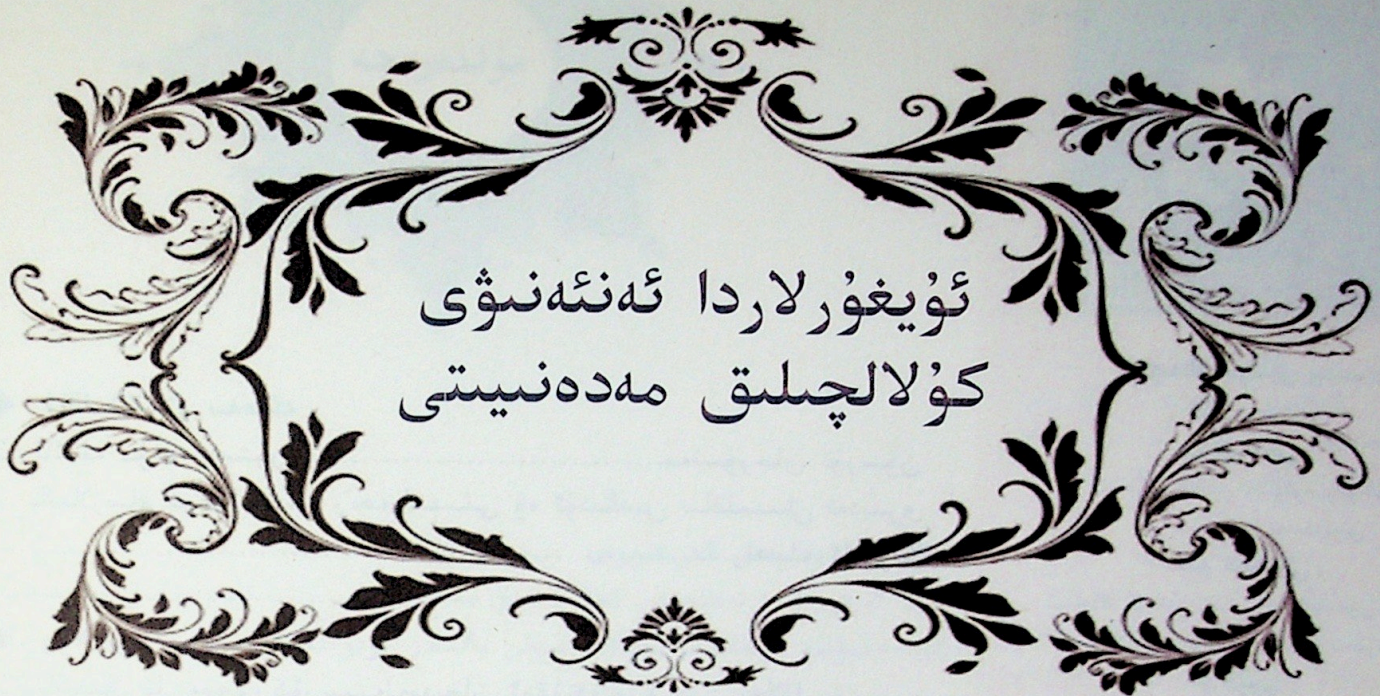 ئۇيغۇرلاردا ئەنئەنىۋى
كۇلالچىلىق مەدەنىيىتى